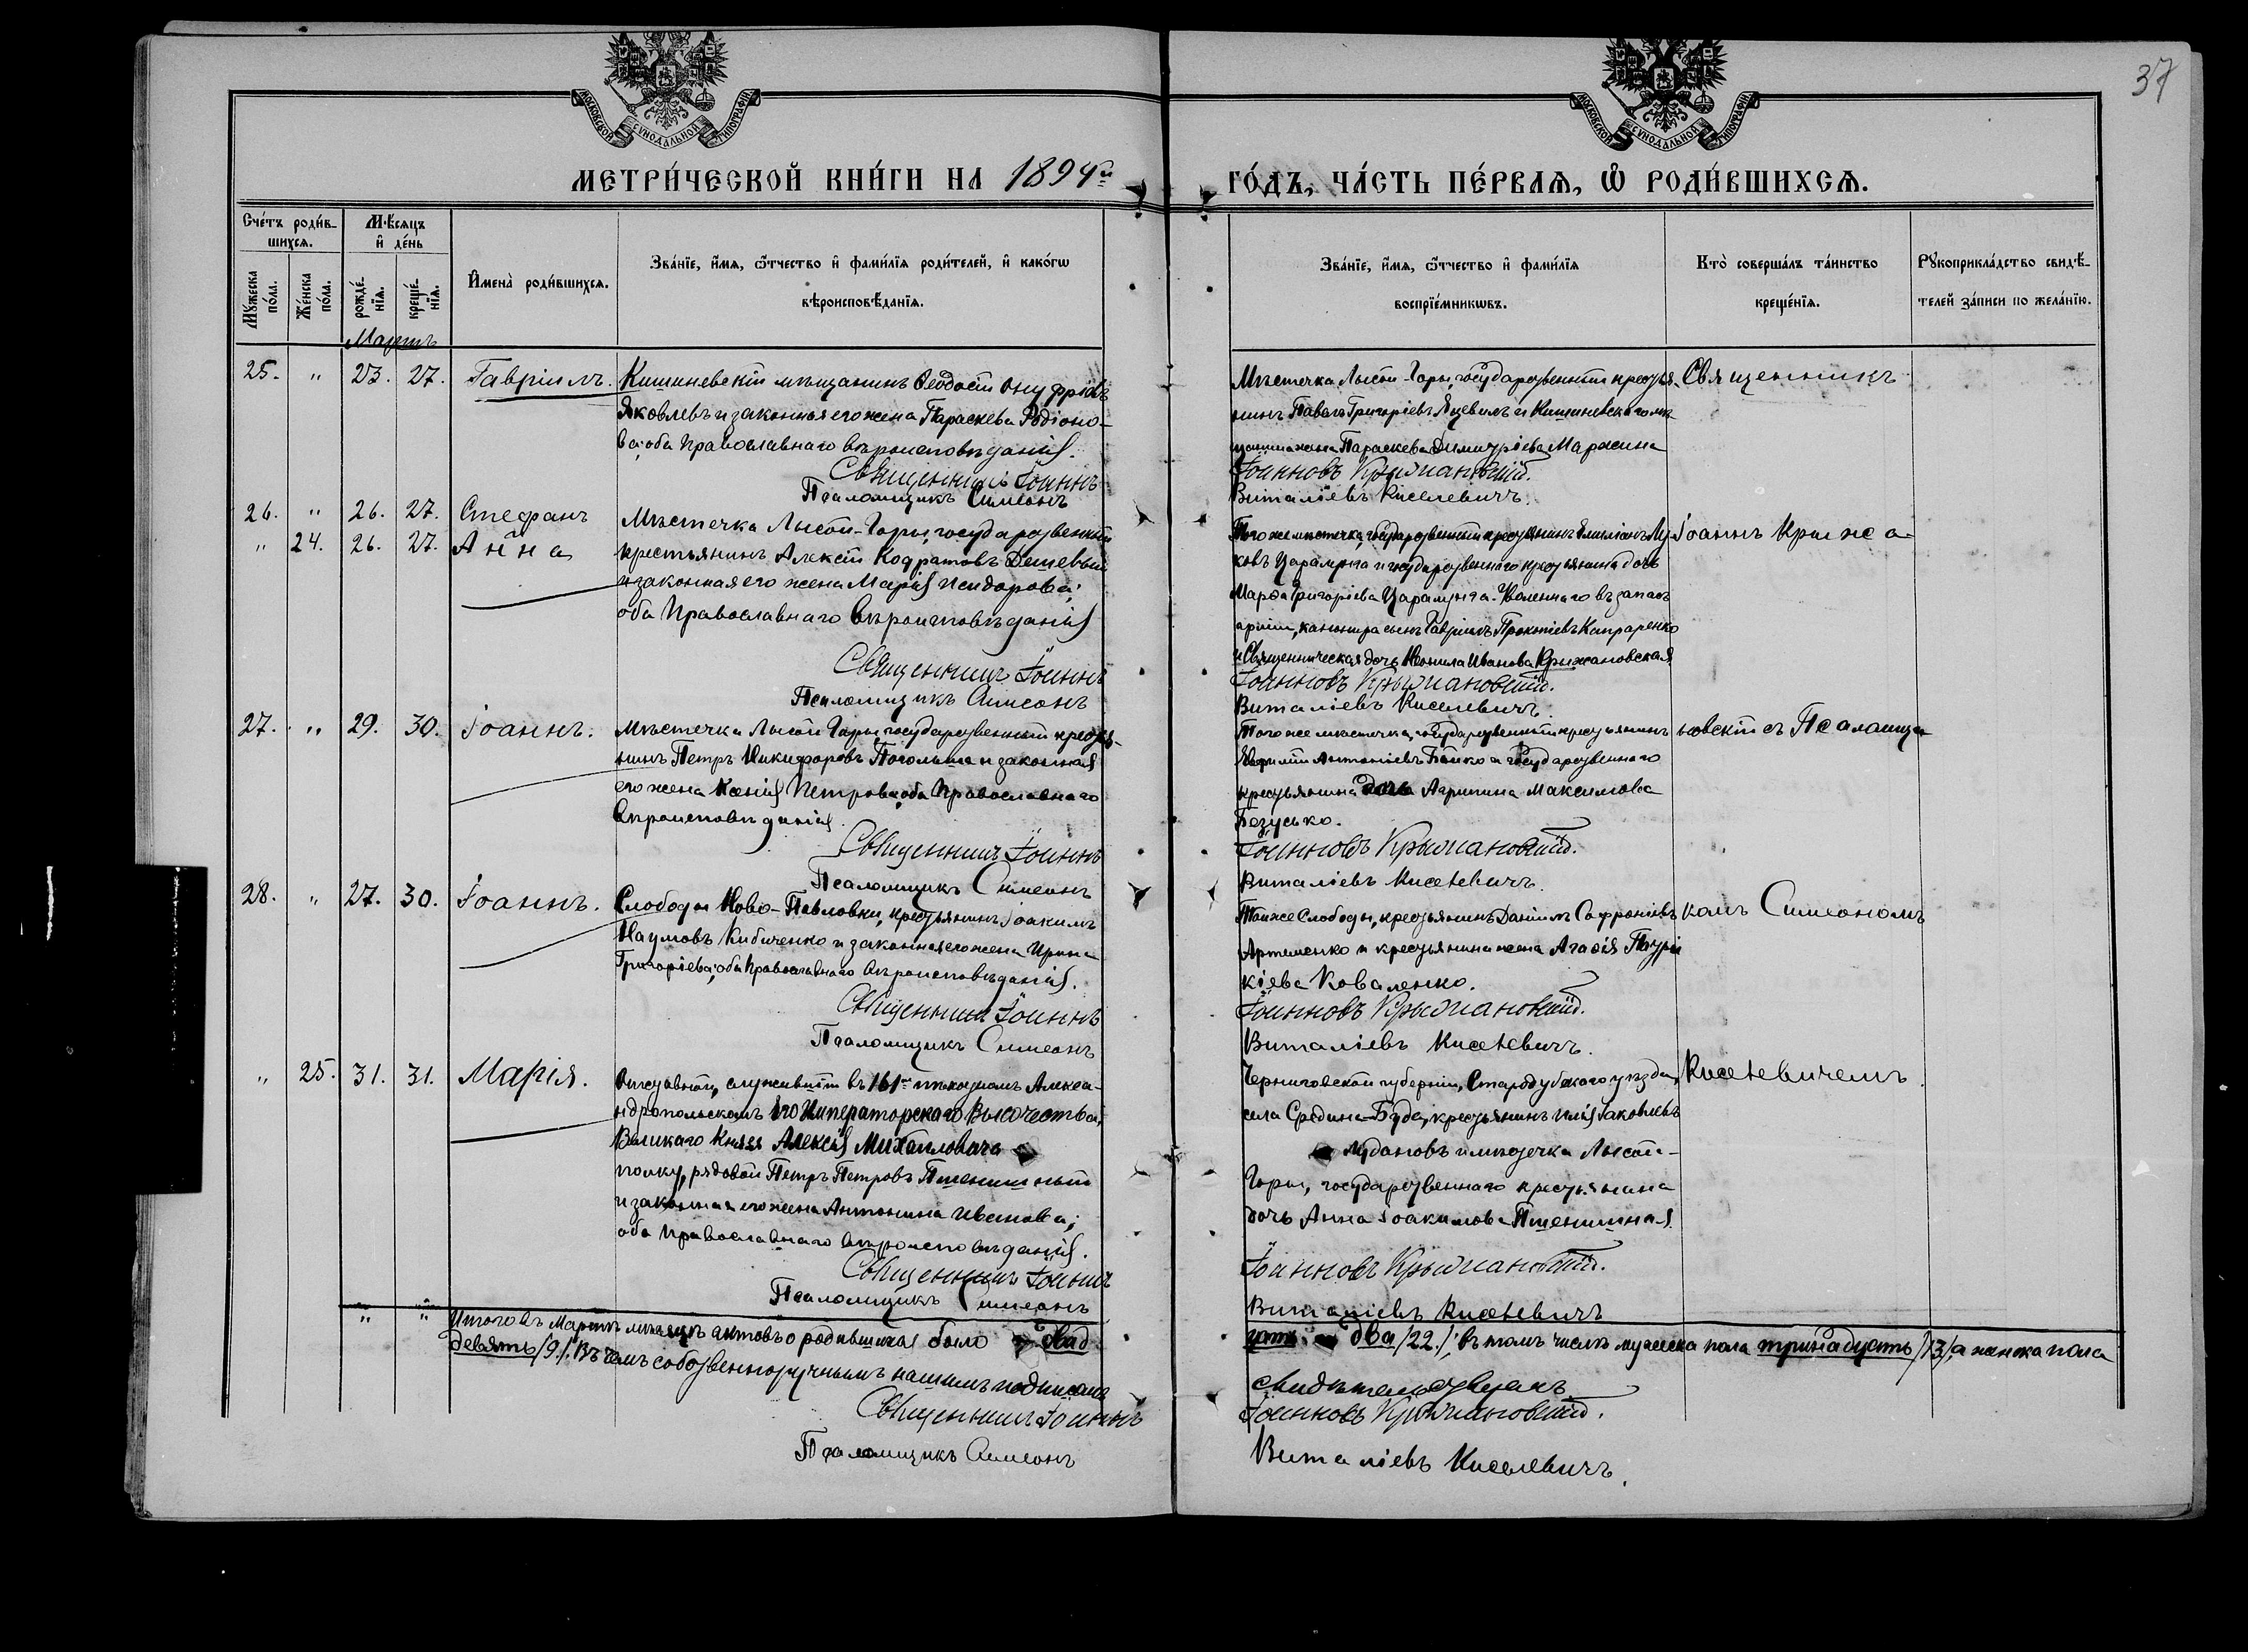 37
МОСКОВСКОЙ СѴНОДАЛЬНОЙ ТИПОГРАФІИ
МОСКОВСКОЙ СѴНОДАЛЬНОЙ ТИПОГРАФІИ
МЕТРИ́ЧЕСКОЙ КНИ́ГИ НА 1894й
ГО́ДЪ, ЧА́СТЬ ПЕ́РВАЯ, Ѽ РОДИ́ВШИХСѦ.
Сче́тъ роди́в-
шихся.
Мѣ́сяцъ
и҆ де́нь
Мꙋ́жеска по́ла.
Же́нска по́ла.
рожде́-нїя.
креще́-нїя.
И҆мена̀ роди́вшихся.
Зва́нїе, и҆́мя, ѻ҆́тчество и҆ фами́лїя роди́телей, и҆ како́гѡ
вѣроисповѣ́данїя.
Зва́нїе, и҆́мя, ѻ҆́тчество и҆ фами́лїя
воспрїе́мникѡвъ.
Кто̀ соверша́лъ та́инство
креще́нїя.
Рꙋкоприкла́дство свидѣ́-
телей за́писи по жела́нїю.
Мартъ
25. " 23. 27. Гавріилъ.
Кишиневскій мѣщанинъ Ѳеодосій Онуфріевъ
Яковлевъ и законная его жена Параскева Родіоно-
ва; оба Православнаго вѣроисповѣданія.
Священникъ Іоаннъ
Псаломщикъ Симеонъ
Мѣстечка Лысой-Горы, государственный крестья-
нинъ Павелъ Григоріевъ и Кишиневскаго мѣ-
щанина жена Параскева Димитріева
Іоанновъ Крыжановскій.
Виталіевъ Киселевичъ.
Священникъ
26. " 26. 27. Стефанъ
" 24. 26. 27. Анна
Мѣстечка Лысой-Горы, государственный
крестьянинъ Алексій Кодратовъ Дешевый
и законная его жена Марія Исидорова;
оба Православнаго Вѣроисповѣданія
Священникъ Іоаннъ
Псаломщикъ Симеонъ
Того же мѣстечка, государственный крестьянинъ
ковъ Царалунга и государственнаго крестьянина дочь
Марѳа Григоріева Царалунга. Уволеннаго въ запасъ
арміи, канонира сынъ Гавріилъ Прокопіевъ
и Священническая дочь Неонила Иванова Крыжановская
Іоанновъ Крыжановскій.
Виталіевъ Киселевичъ.
Іоаннъ Крыжа-
27. " 29. 30. Іоаннъ.
Мѣстечка Лысой Горы, государственный крестья-
нинъ Петръ Никифоровъ и законная
его жена Ксенія Петрова; оба Православнаго
Вѣроисповѣданія.
Священникъ Іоаннъ
Псаломщикъ Симеонъ
Того же мѣстечка, государственный крестьянинъ
Евфимій Антоніевъ Бойко и государственнаго
крестьянина дочь Агрипина Максимова
Безусько.
Іоанновъ Крыжановскій.
Виталіевъ Киселевичъ.
новскій съ Псаломщи-
28. " 27. 30. Іоаннъ.
Слободы Ново-Павловки, крестьянинъ Іоакимъ
Наумовъ Кибиченко и законная его жена Ирина
Григоріева; оба Православнаго Вѣроисповѣданія.
Священникъ Іоаннъ
Псаломщикъ Симеонъ
Той же Слободы, крестьянинъ Даніилъ Софроніевъ
Артеменко и крестьянина жена Агаѳія Патри-
кіева Коваленко.
Іоанновъ Крыжановскій.
Виталіевъ Киселевичъ.
комъ Симеономъ
" 25. 31. 31. Марія.
служившій въ 161мъ пѣхотномъ Алекса-
ндропольскомъ Его Императорскаго Высочества,
Великаго Князя Алексія Михайловича
полку, рядовой Петръ Петровъ Пшеничный
и законная его жена Антонина Иванова;
оба Православнаго вѣроисповѣданія.
Священникъ Іоаннъ
Псаломщикъ Симеонъ
Черниговской губерніи, Стародубскаго уѣзда,
села Средина-Буда, крестьянинъ Илія Іаковлевъ
и мѣстечка Лысой-
Горы, государственнаго крестьянина
дочь Анна Іоакимова Пшеничная.
Іоанновъ Крыжановскій.
Виталіевъ Киселевичъ
Киселевичемъ.
" " Итого въ Мартѣ мѣсяцѣ актовъ о родившихся было двад-
цать два /22./, въ томъ числѣ мужеска пола тринадцать /13/, а женска пола
девять /9./. Въ чемъ собственноручнымъ нашимъ подписомъ
свидѣтельствуемъ
Священникъ Іоаннъ
Іоанновъ Крыжановскій.
Псаломщикъ Симеонъ
Виталіевъ Киселевичъ.